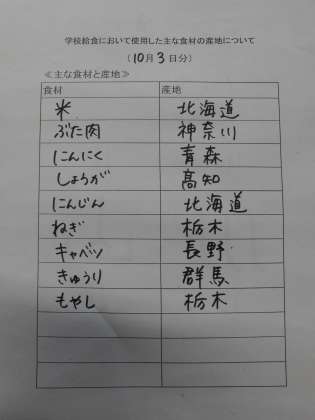 学校給食において使用した主な食材の産地について
(10月3日分)
≪主な食材と産地≫
食材 産地
米 北海道
ぶた肉 神奈川
にんにく 青森
しょうが 高知
にんじん 北海道
ねぎ 栃木
キャベツ 長野
きゅうり 群馬
もやし 栃木